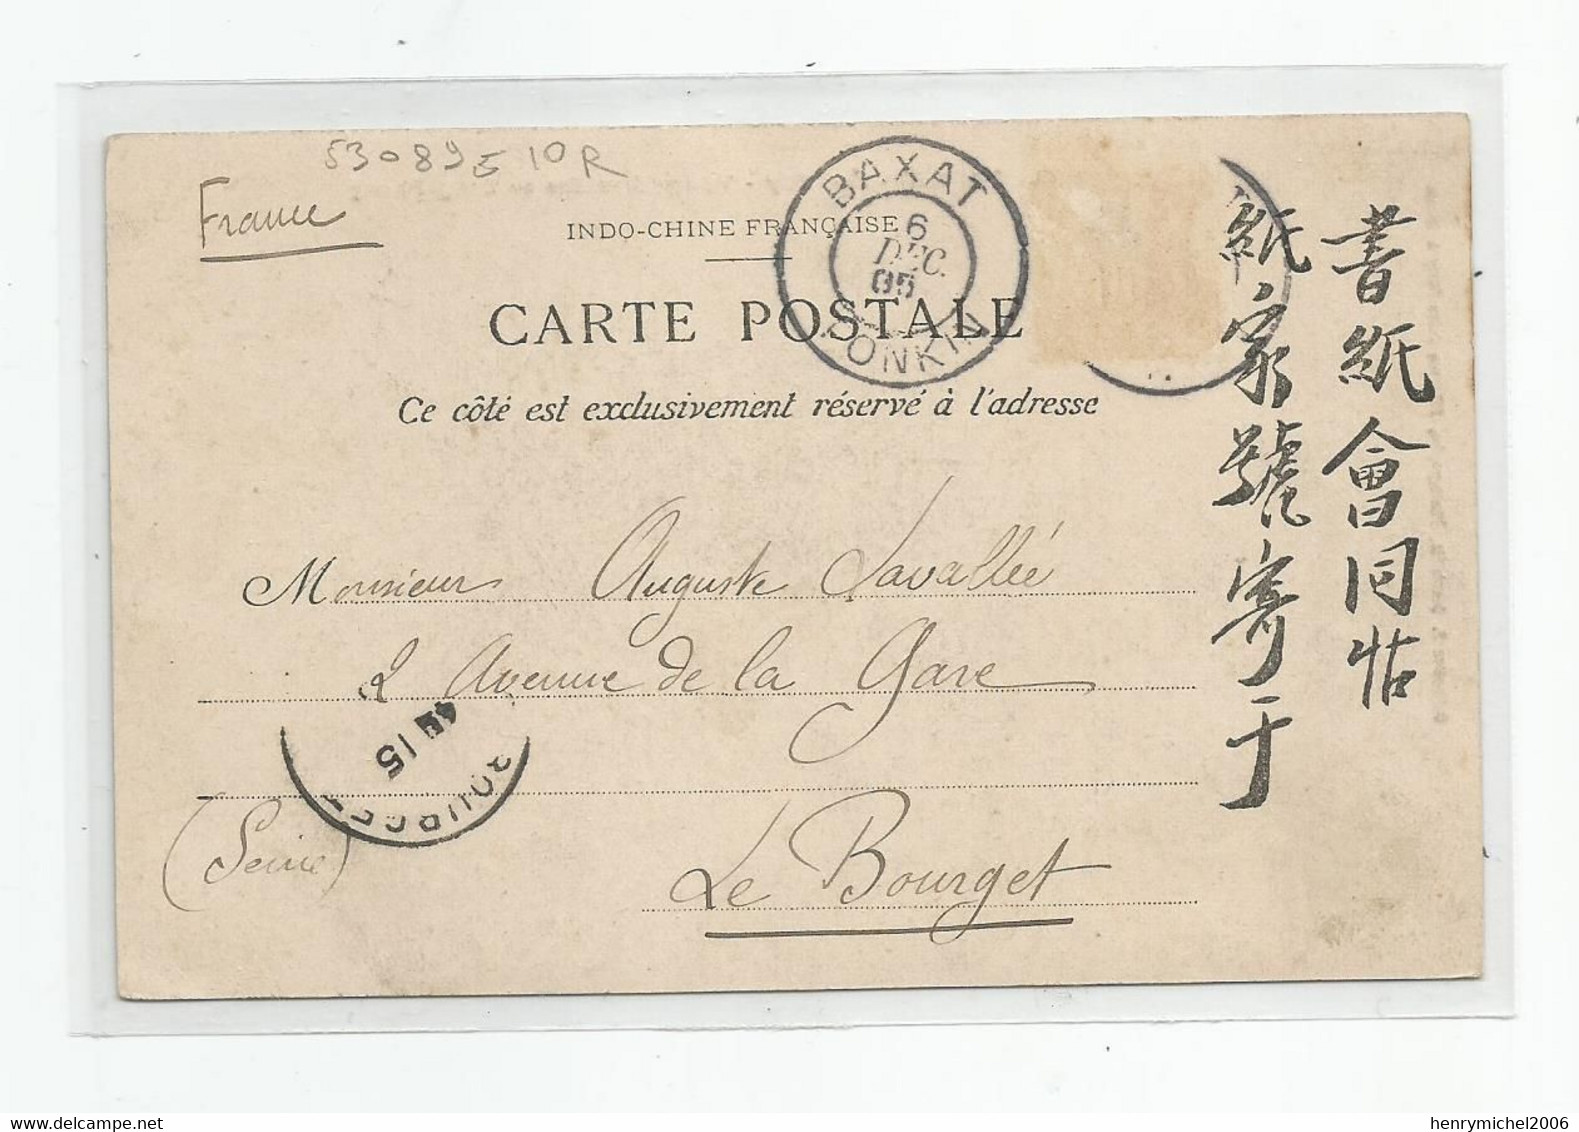 53089 E 10R
France
INDO-CHINE FRANÇAISE
BAXAT
6
DÉC.
05
TONKIN
CARTE POSTALE
Ce côté est exclusivement réservé à l'adresse
Monsieur Auguste Lavallée
2 Avenue de la Gare
(Seine)
Le Bourget
15
BOURGET
書紙會同帖
紙家號寄于
henrymichel2006